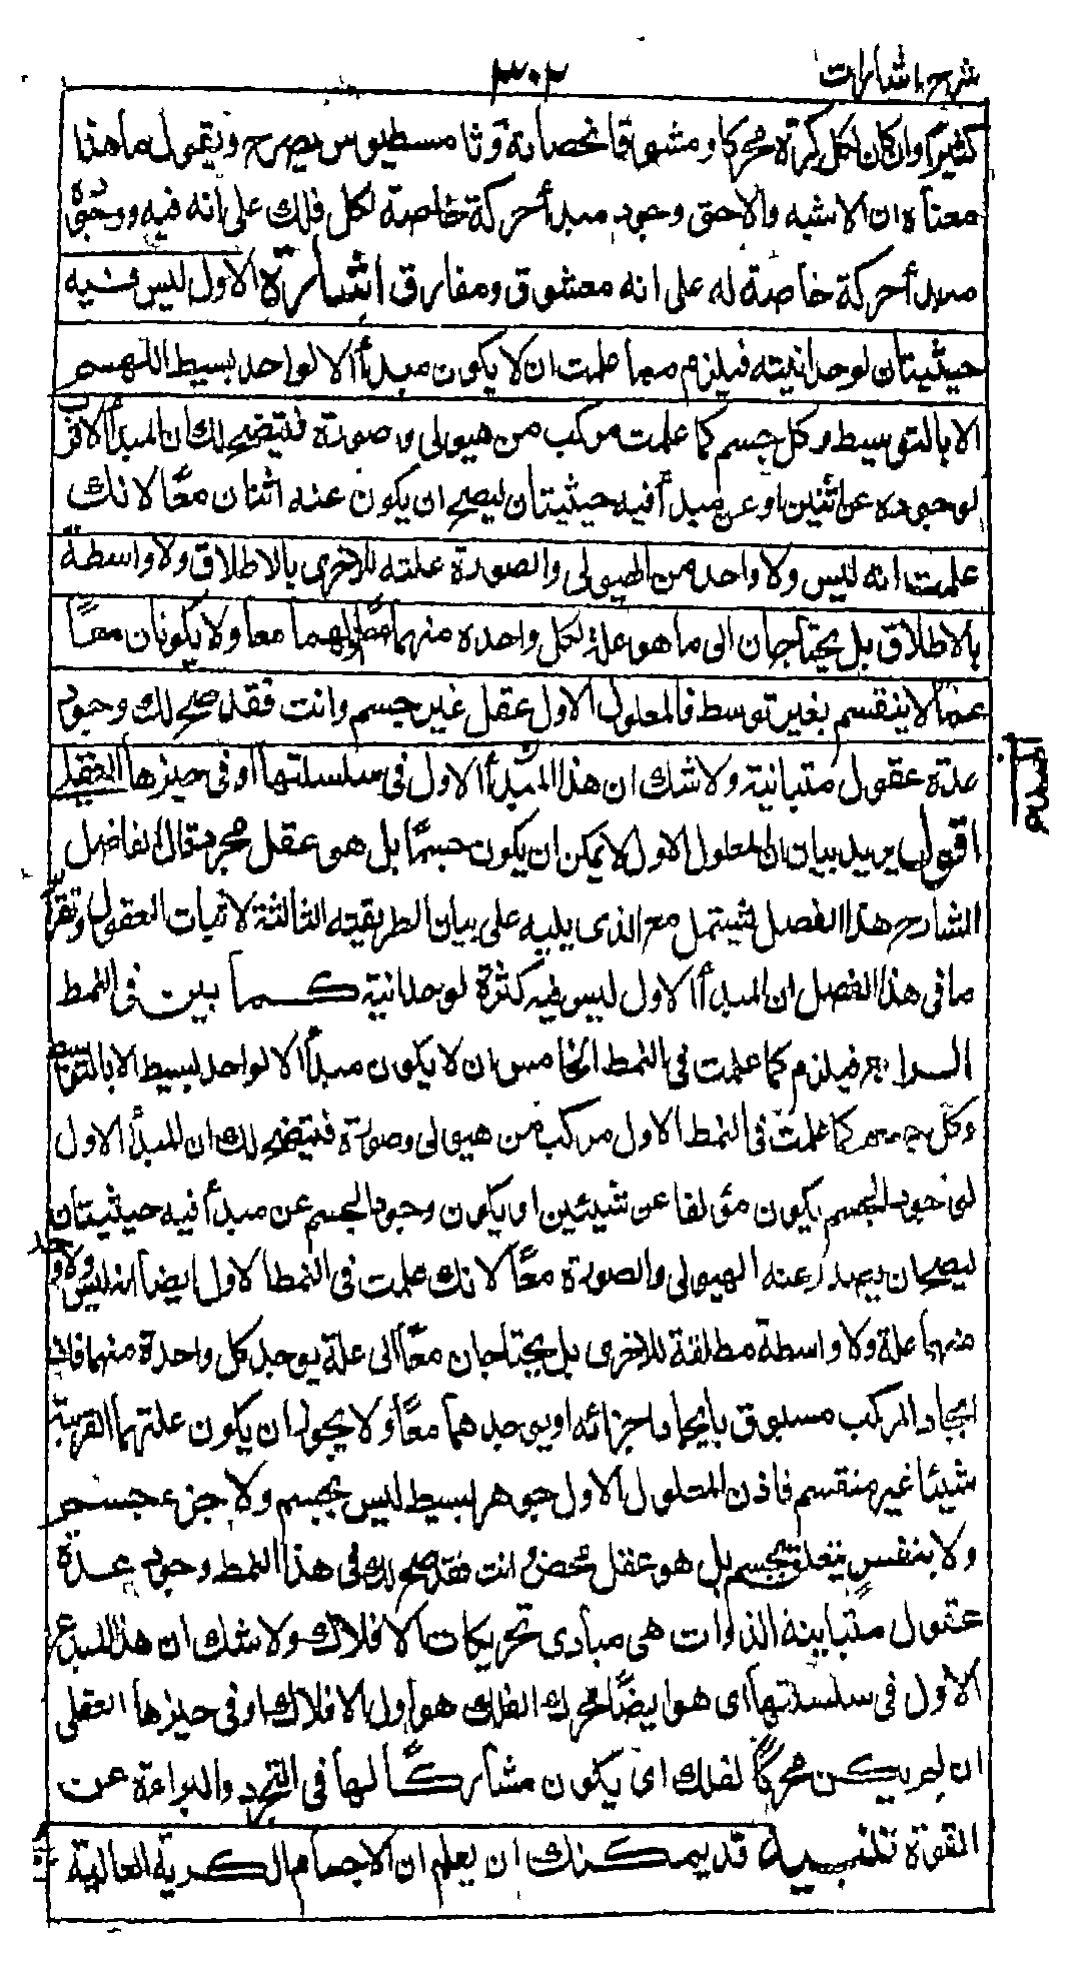 شرح اشارات
٣٠٢
كثيرا وان كان لكل كرة محركا ومشوقا تخصانه وثامسطيوس يصرح ويقول ما هذا
معناه ان الاشبه والاحق وجود مبدأ حركة خاصة لكل فلك على انه فيه ووجود
مبدأ حركة خاصة له على انه معشوق ومفارق اشارة الاول ليس فيه
حيثيتان لوحدانيته فيلزم مما علمت ان لا يكون مبدأ الا لواحد بسيط اللهم
الا بالتوسيط وكل جسم كما علمت مركب من هيولى وصورة فيتضح لك ان المبدأ الاقرب
لوجوده عن اثنين او عن مبدأ فيه حيثيتان ليصح ان يكون عنه اثنان معًا لانك
علمت انه ليس ولا واحد من الهيولى والصورة علته للاخرى بالاطلاق ولا واسطة
بالاطلاق بل يحتاجان الى ما هو علة لكل واحده منهما او لهما معا ولا يكونان معًا
عما لا ينقسم بغير توسط فالمعلول الاول عقل غير جسم وانت فقد صح لك وجود
عدة عقول متباينة ولا شك ان هذا المبدأ الاول فى سلسلتها او فى حيزها العقلى
اقول يريد بيان ان المعلول الاول لا يمكن ان يكون جسمًا بل هو عقل مجرد قال الفاضل
الشارح هذا الفصل يشتمل مع الذى يليه على بيان الطريقة الثالثة لاثبات العقول وتقرير
ما فى هذا الفصل ان المبدأ الاول ليس فيه كثرة لوحدانية كما بين فى النمط
الرابع فيلزم كما علمت فى النمط الخامس ان لا يكون مبدأ الا لواحد بسيط الا بالتوسط
وكل جسم كما علمت فى النمط الاول مركب من هيولى وصورة فيتضح لك ان المبدأ الاول
لوجود الجسم يكون مؤلفا عن شيئين او يكون وجود الجسم عن مبدأ فيه حيثيتان
ليصح ان يصدر عنه الهيولى والصورة معًا لانك علمت فى النمط الاول ايضا انه ليس ولا واحد
منهما علة ولا واسطة مطلقة للاخرى بل يحتاجان معًا الى علة يوجد كل واحدة منهما فان
ايجاد المركب مسبوق بايجاد اجزائه او يوجدهما معًا ولا يجوز ان يكون علتهما القريبة
شيئا غير منقسم فاذن المعلول الاول جوهر بسيط ليس بجسم ولا جزء جسم
ولا بنفس يتعلق بجسم بل هو عقل محض وانت فقد صح لك فى هذا النمط وجود عدة
عقول متباينة الذوات هى مبادى تحريكات الافلاك ولا شك ان هذا المبدع
الاول فى سلسلتها اى هو ايضًا محرك الفلك هو اول الافلاك او فى حيزها العقلى
ان لم يكن محركًا لفلك اى يكون مشاركًا لها فى التجرد والبراءة عن
القوة تنبيه قد يمكنك ان يعلم ان الاجسام الكرية العالية